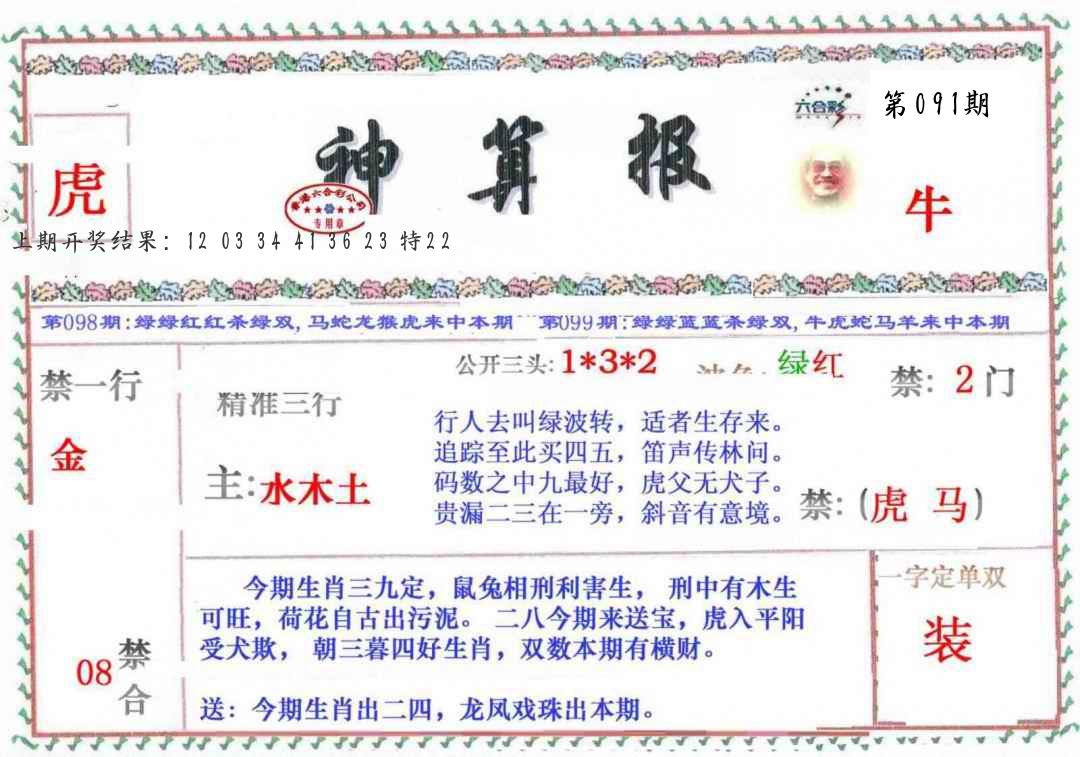 六合彩
第091期
神算报
香港六合彩公司
专用章
虎
牛
上期开奖结果：12 03 34 41 36 23 特22
第098期:绿绿红红杀绿双,马蛇龙猴虎来中本期
第099期:绿绿蓝蓝杀绿双,牛虎蛇马羊来中本期
禁一行
金
公开三头:1*3*2
绿红
禁: 2门
精准三行
主:水木土
行人去叫绿波转，适者生存来。
追踪至此买四五，笛声传林问。
码数之中九最好，虎父无犬子。
贵漏二三在一旁，斜音有意境。
禁:(虎 马)
今期生肖三九定，鼠兔相刑利害生， 刑中有木生
可旺，荷花自古出污泥。 二八今期来送宝，虎入平阳
受犬欺， 朝三暮四好生肖，双数本期有横财。
送：今期生肖出二四，龙凤戏珠出本期。
一字定单双
装
08
禁合